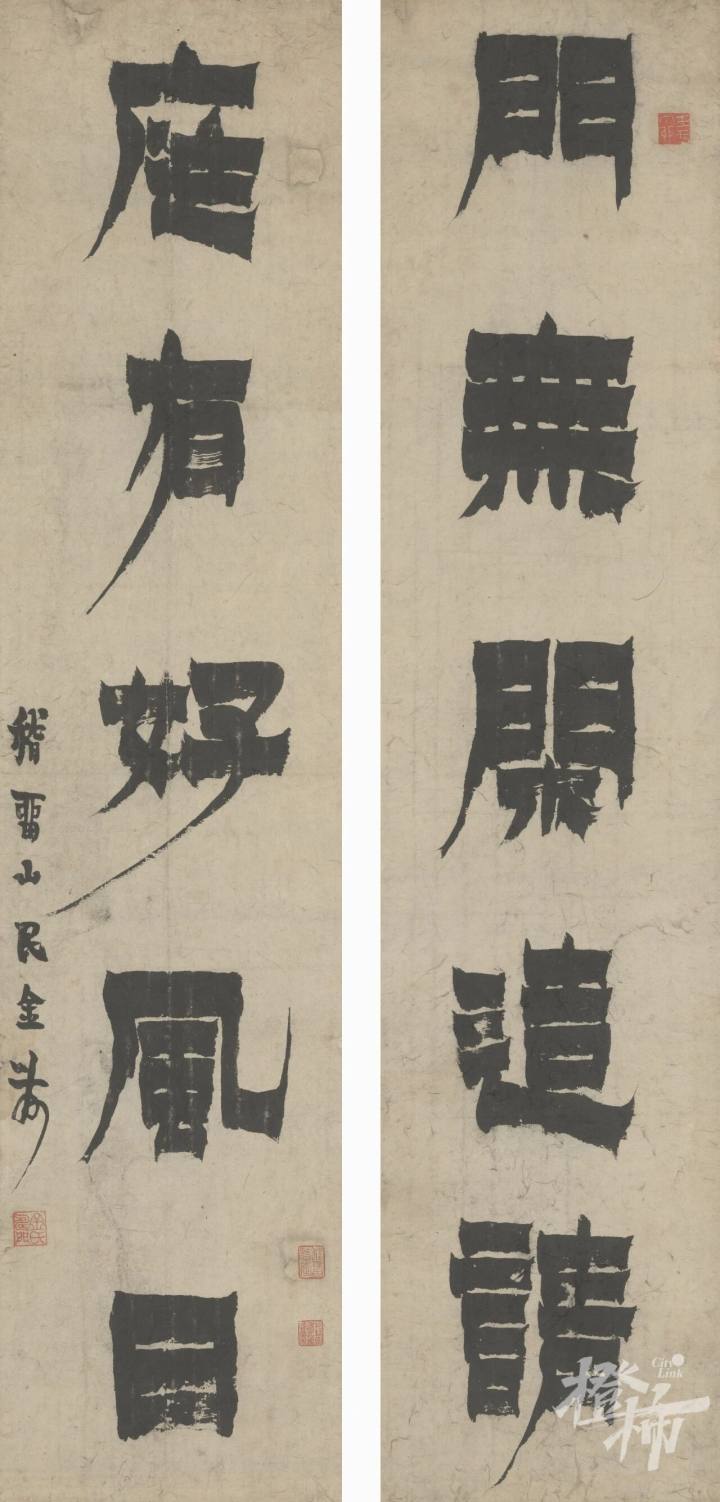 門無閑造請
庭有好風日
稽畱山民金農
橙柿
City
Link